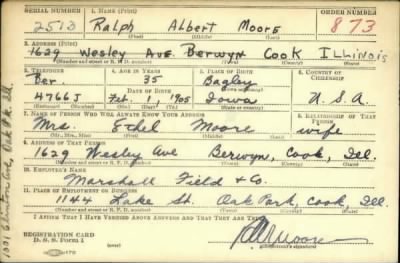 SERIAL NUMBER 1. NAME (Print) ORDER NUMBER
2513 Ralph Albert Moore 873
(First) (Middle) (Last)
2. ADDRESS (Print)
1629 Wesley Ave Berwyn Cook ILLINOIS
3. TELEPHONE 4. AGE IN YEARS 5. PLACE OF BIRTH 6. COUNTRY OF CITIZENSHIP
Ber. 35 Bagley
DATE OF BIRTH
4766J Feb. 1, 1905 Iowa U.S.A.
7. NAME OF PERSON WHO WILL ALWAYS KNOW YOUR ADDRESS 8. RELATIONSHIP OF THAT PERSON
Mrs. Ethel Moore wife
(Mr., Mrs., Miss) (First) (Middle) (Last)
9. ADDRESS OF THAT PERSON
1629 Wesley Ave Berwyn, Cook, Ill.
10. EMPLOYER'S NAME
Marshall Field & Co.
11. PLACE OF EMPLOYMENT OR BUSINESS
1144 Lake St. Oak Park, Cook, Ill.
I AFFIRM THAT I HAVE VERIFIED ABOVE ANSWERS AND THAT THEY ARE TRUE.
REGISTRATION CARD
D. S. S. Form 1